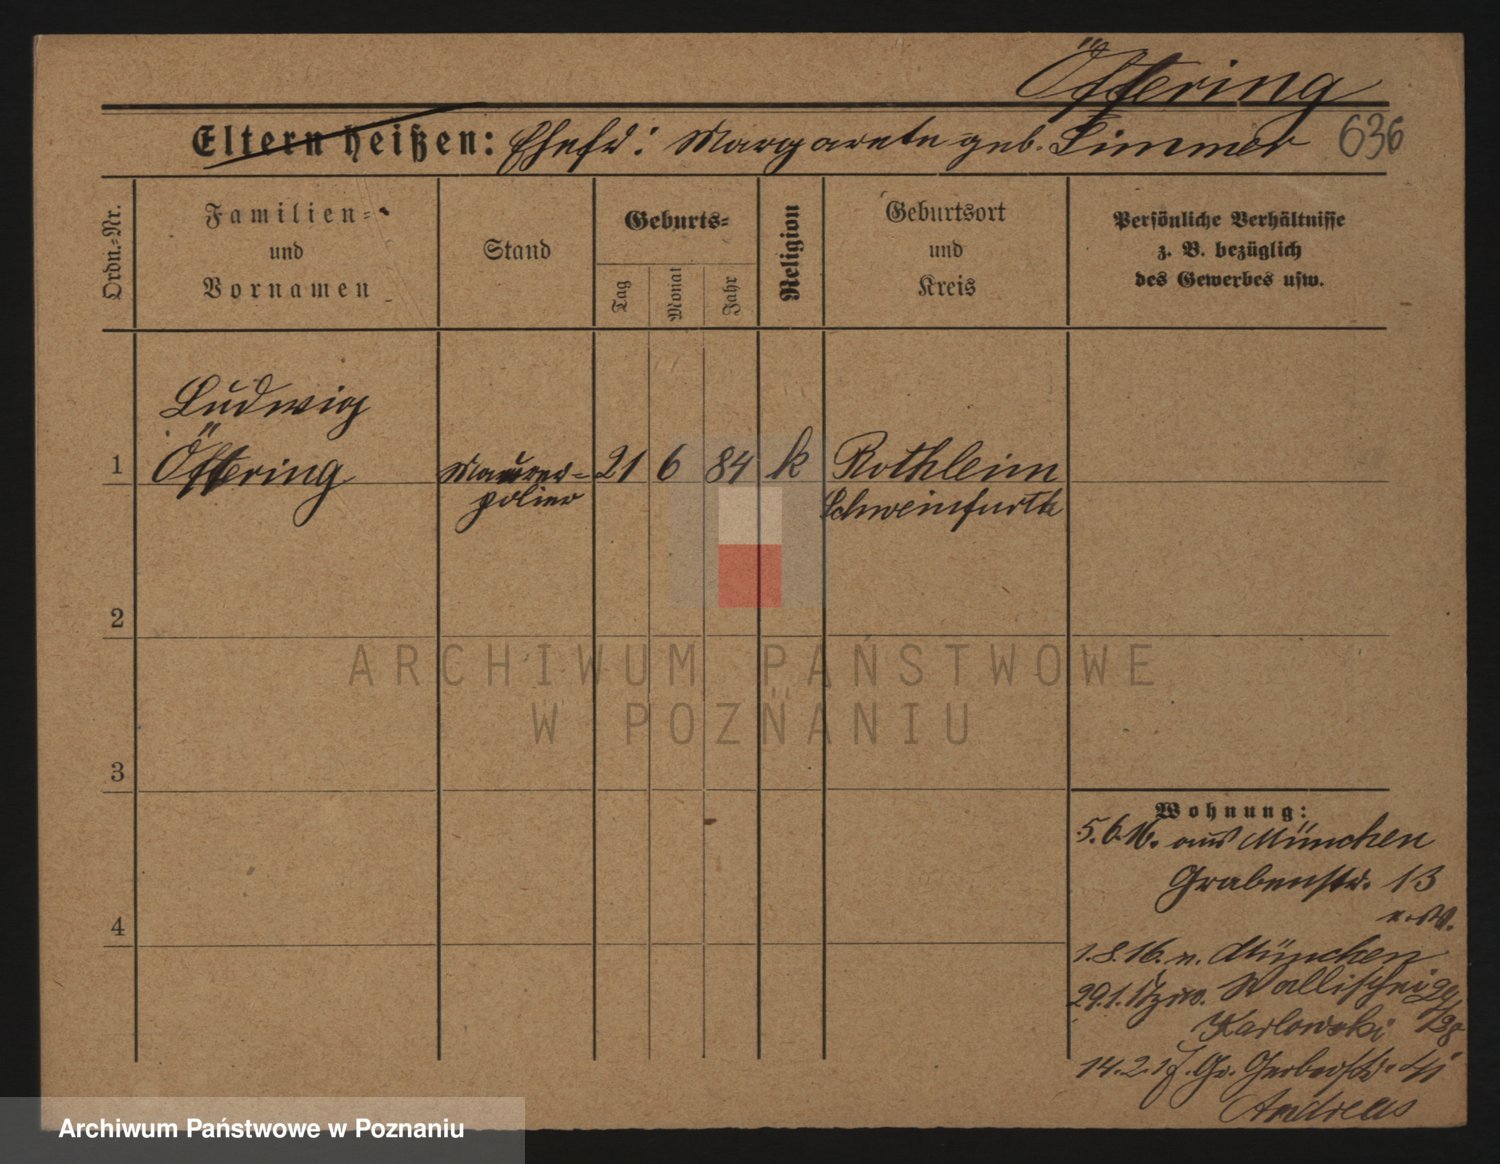 Öffering
Eltern heißen: Ehefr: Margarete geb. Simmer 636
Ordn.-Nr.
Familien-
und
Vornamen
Stand
Geburts-
Tag
Monat
Jahr
Religion
Geburtsort
und
Kreis
Persönliche Verhältnisse
z. B. bezüglich
des Gewerbes usw.
Ludwig
1 Öffering Maurer- 21 6 84 k Rothleim
polier Schweinfurth
2
ARCHIWUM PAŃSTWOWE
W POZNANIU
3
Wohnung:
5.6.16. aus München
Grabenstr. 13
4
1.8.16. n. München
29.1. Wallischei 29/28
Karlowski
14.2.17. Gr. Gerberstr. 41
Andreas
Archiwum Państwowe w Poznaniu